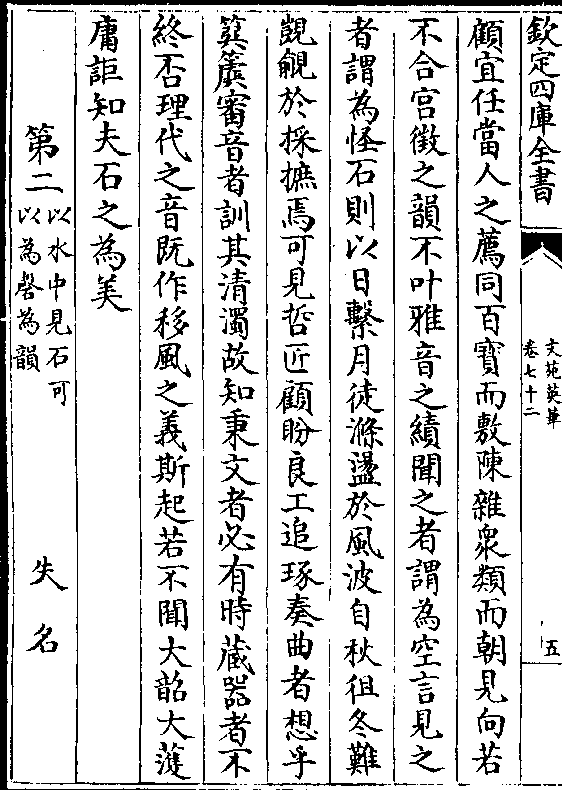 欽定四庫全書
文苑英華
卷七十二
五
顧宜任當人之薦同百寶而敷陳雜衆類而朝見向若
不合宮徵之韻不叶雅音之績聞之者謂為空言見之
者謂為怪石則以日繫月徒滌盪於風波自秋徂冬難
覬覦於採摭焉可見哲匠顧盼良工追琢奏曲者想乎
簨簴審音者訓其清濁故知秉文者必有時藏器者不
終否理代之音既作移風之義斯起若不聞大韶大濩
庸詎知夫石之為美
第二
以水中見石可
以為磬為韻
失名